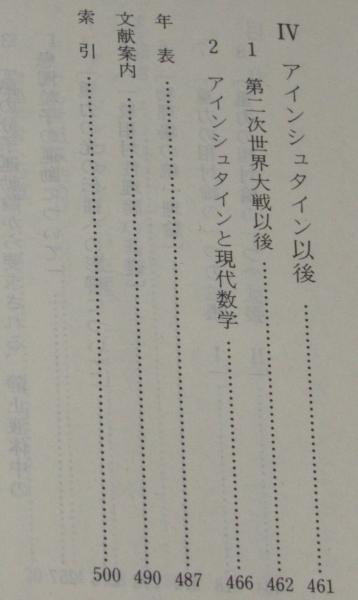 Ⅳ アインシュタイン以後……461
1 第二次世界大戦以後……462
2 アインシュタインと現代数学……466
年表……487
文献案内……490
索引……500